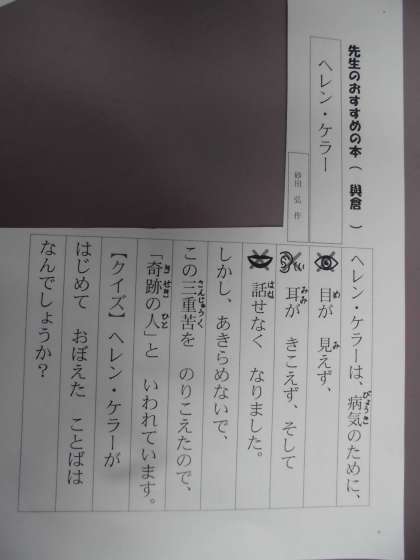 先生のおすすめの本（ 與倉 ）
ヘレン・ケラー
砂田 弘 作
ヘレン・ケラーは、病気のために、
目が 見えず、
耳が きこえず、そして
話せなく なりました。
しかし、あきらめないで、
この三重苦を のりこえたので、
「奇跡の人」と いわれています。
【クイズ】ヘレン・ケラーが
はじめて おぼえた ことばは
なんでしょうか？